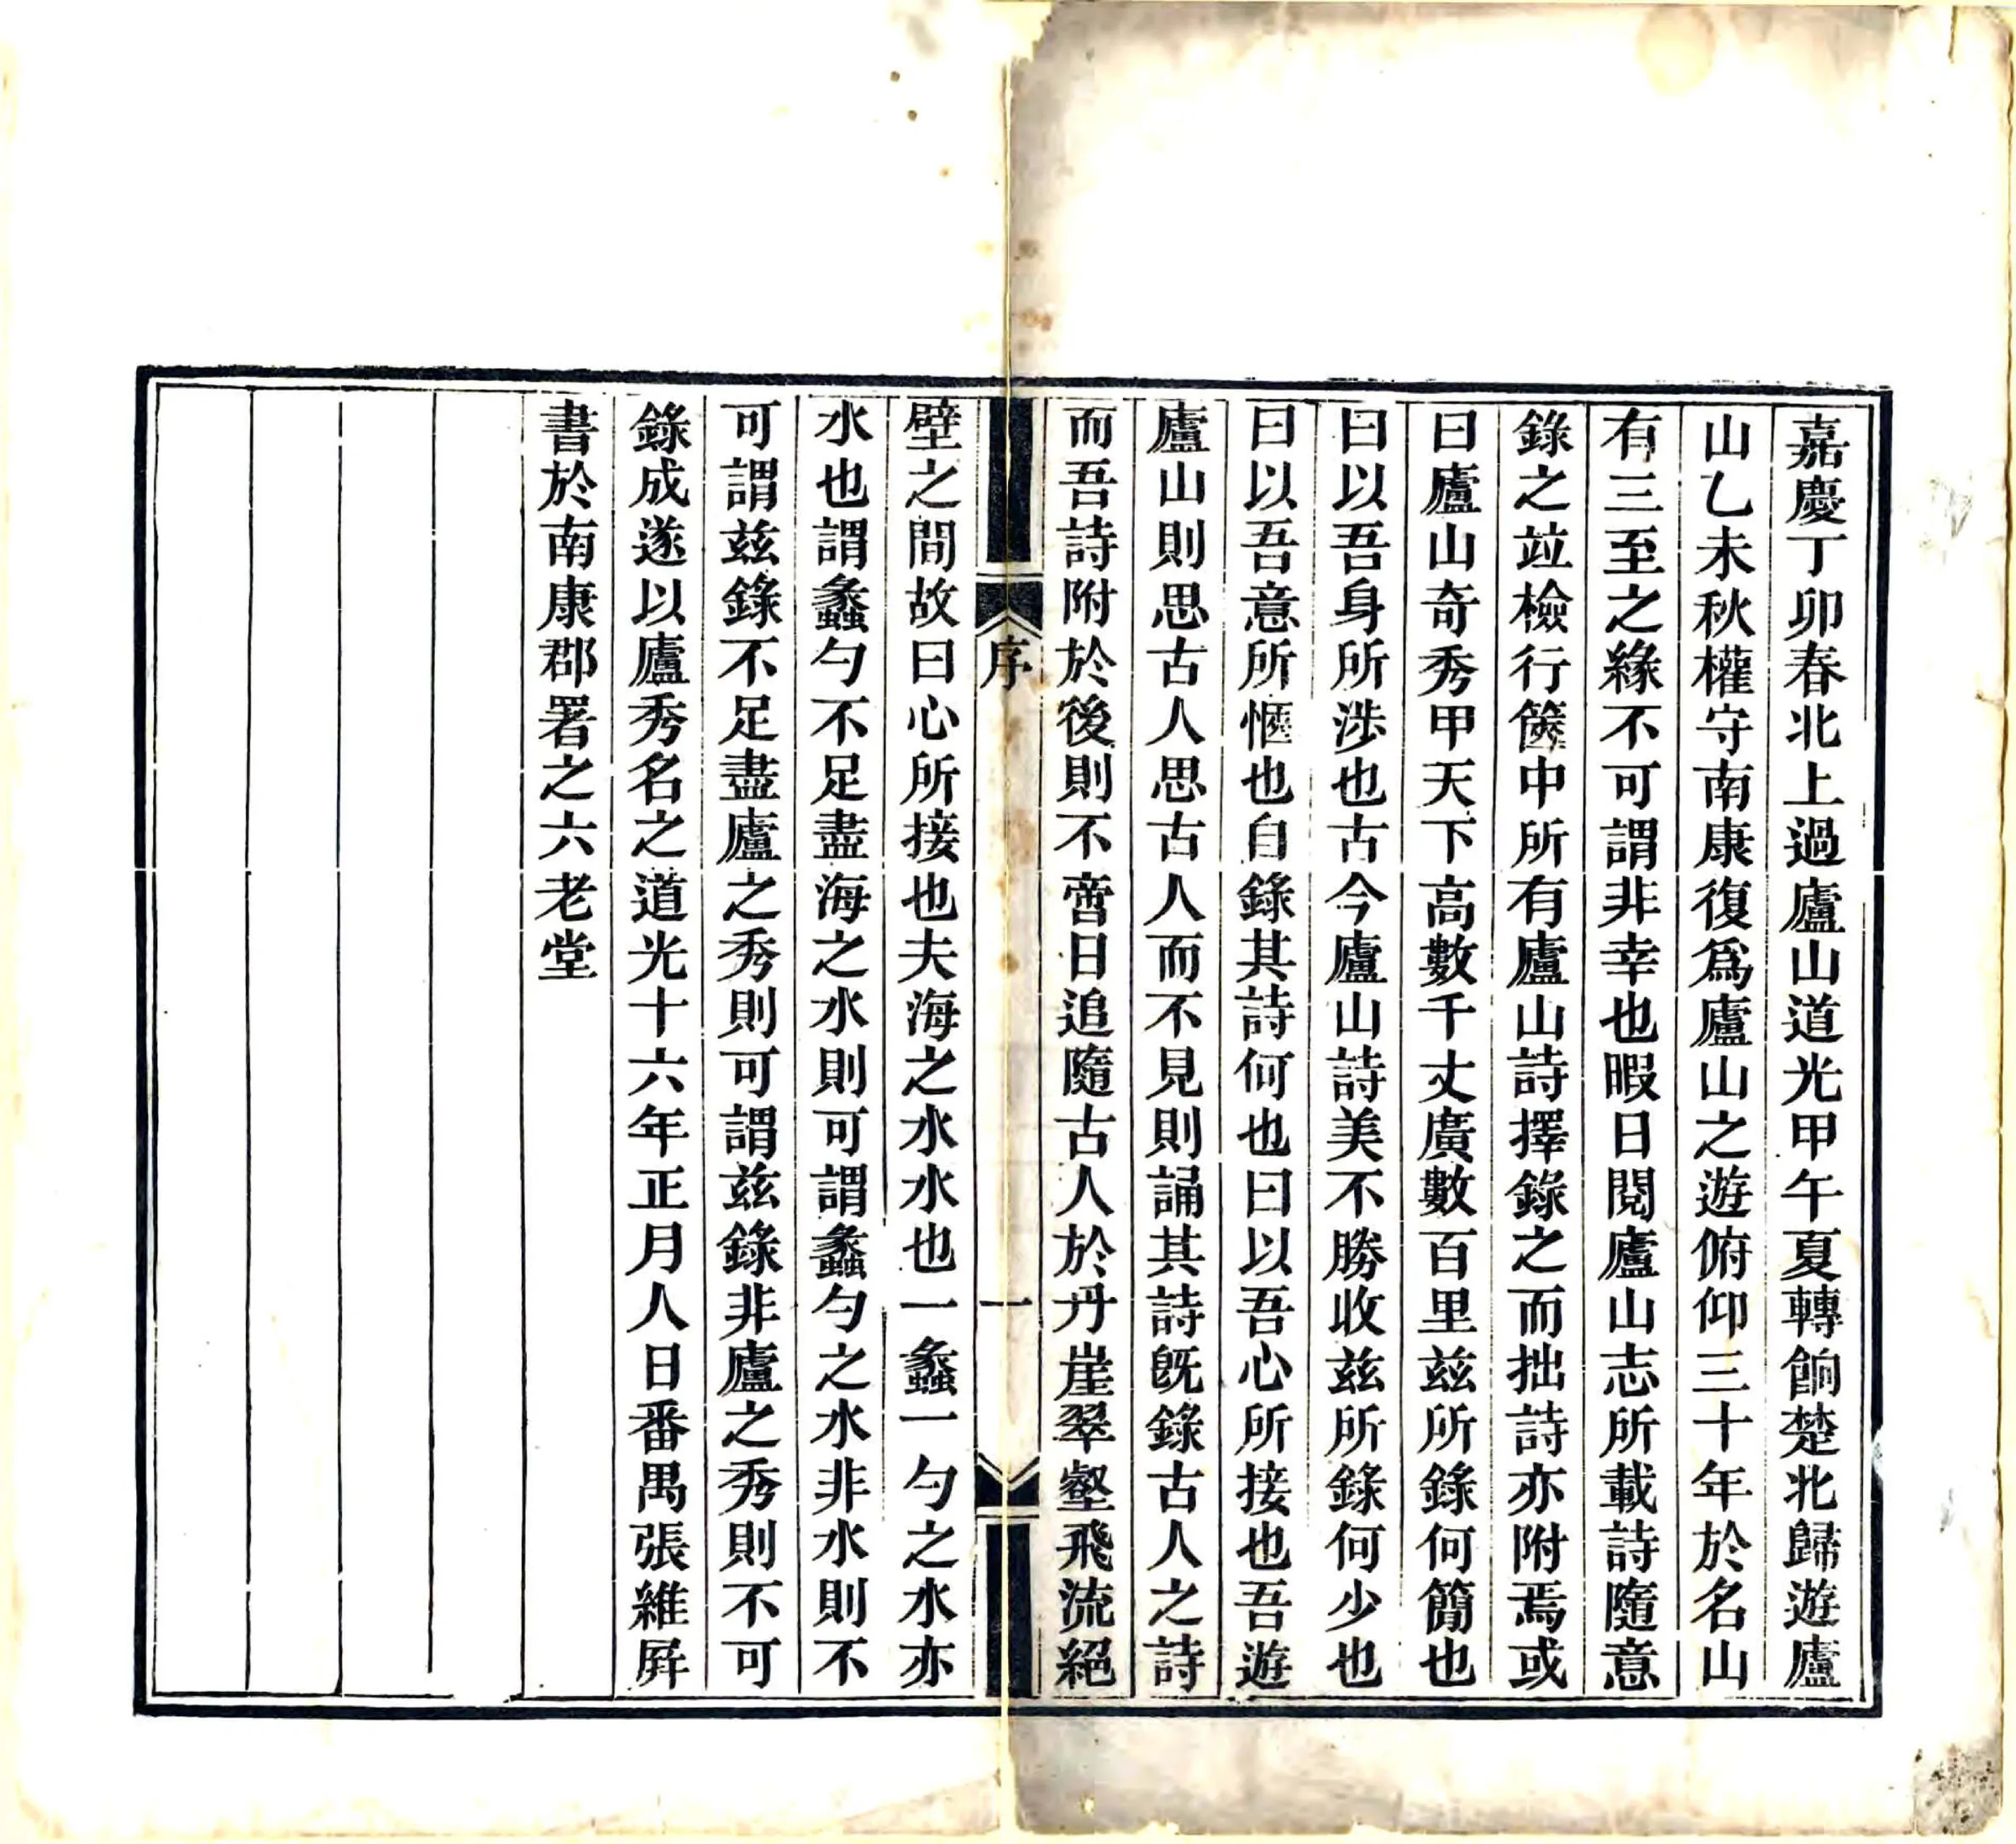 嘉慶丁卯春北上過廬山道光甲午夏轉餉楚北歸遊廬
山乙未秋權守南康復爲廬山之遊俯仰三十年於名山
有三至之緣不可謂非幸也暇日閱廬山志所載詩隨意
錄之竝檢行篋中所有廬山詩擇錄之而拙詩亦附焉或
曰廬山奇秀甲天下高數千丈廣數百里兹所錄何簡也
曰以吾身所涉也古今廬山詩美不勝收兹所錄何少也
曰以吾意所愜也自錄其詩何也曰以吾心所接也吾遊
廬山則思古人思古人而不見則誦其詩旣錄古人之詩
而吾詩附於後則不啻日追隨古人於丹崖翠壑飛流絕
序
一
壁之間故曰心所接也夫海之水水也一蠡一勺之水亦
水也謂蠡勺不足盡海之水則可謂蠡勺之水非水則不
可謂兹錄不足盡廬之秀則可謂兹錄非廬之秀則不可
錄成遂以廬秀名之道光十六年正月人日番禺張維屛
書於南康郡署之六老堂